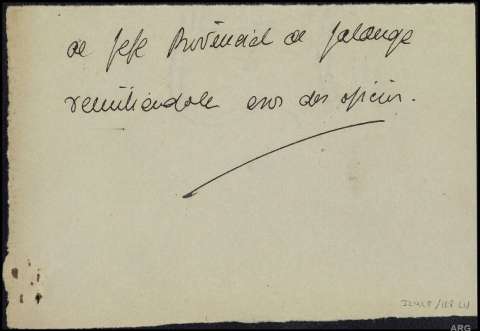 de Jefe Provincial de Falange
remitiendole esos dos oficios.
ARG